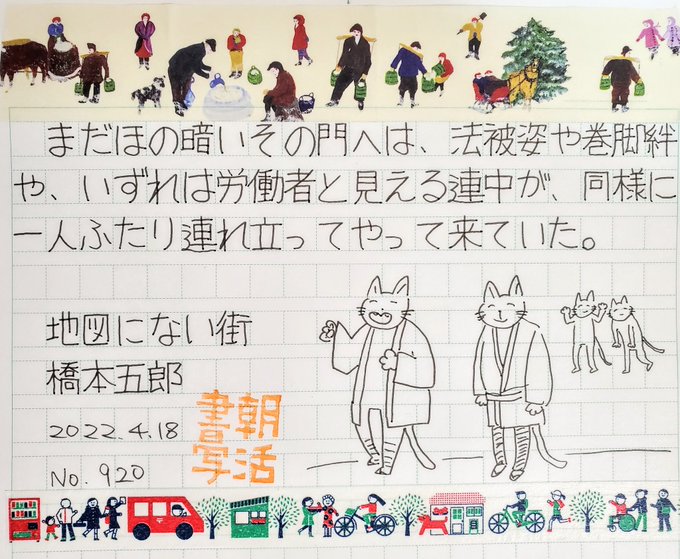 まだほの暗いその門へは、法被姿や巻脚絆
や、いずれは労働者と見える連中が、同様に
一人ふたり連れ立ってやって来ていた。
地図にない街
橋本五郎
2022.4.18
No. 920
朝活
書写